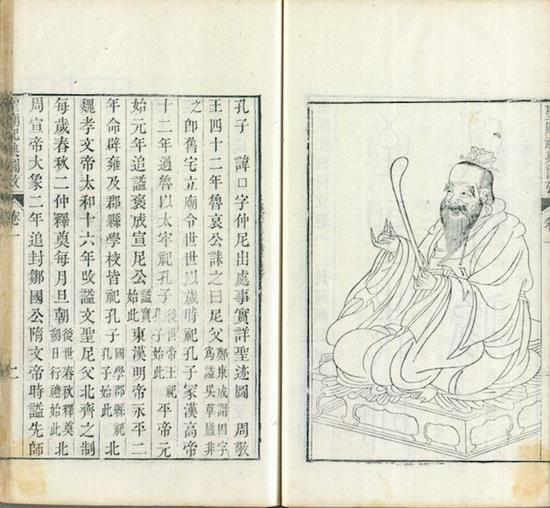 孔子 諱口字仲尼出處事實詳聖迹圖 周敬
王四十二年魯哀公誄之曰尼父鄭康成謂因字爲謚吳草廬非
之卽舊宅立廟令世世以歲時祀孔子冢漢高帝
十二年過魯以太牢祀孔子後世帝王祀孔子始此平帝元
始元年追謚褒成宣尼公謚實始此東漢明帝永平二
年命辟雍及郡縣學校皆祀孔子國學郡縣祀孔子始此北
魏孝文帝太和十六年改謚文聖尼父北齊之制
每歲春秋二仲釋奠每月旦朝後世春秋釋奠朔日行禮始此北
周宣帝大象二年追封鄒國公隋文帝時謚先師
聖廟祀典圖攷 卷一 二